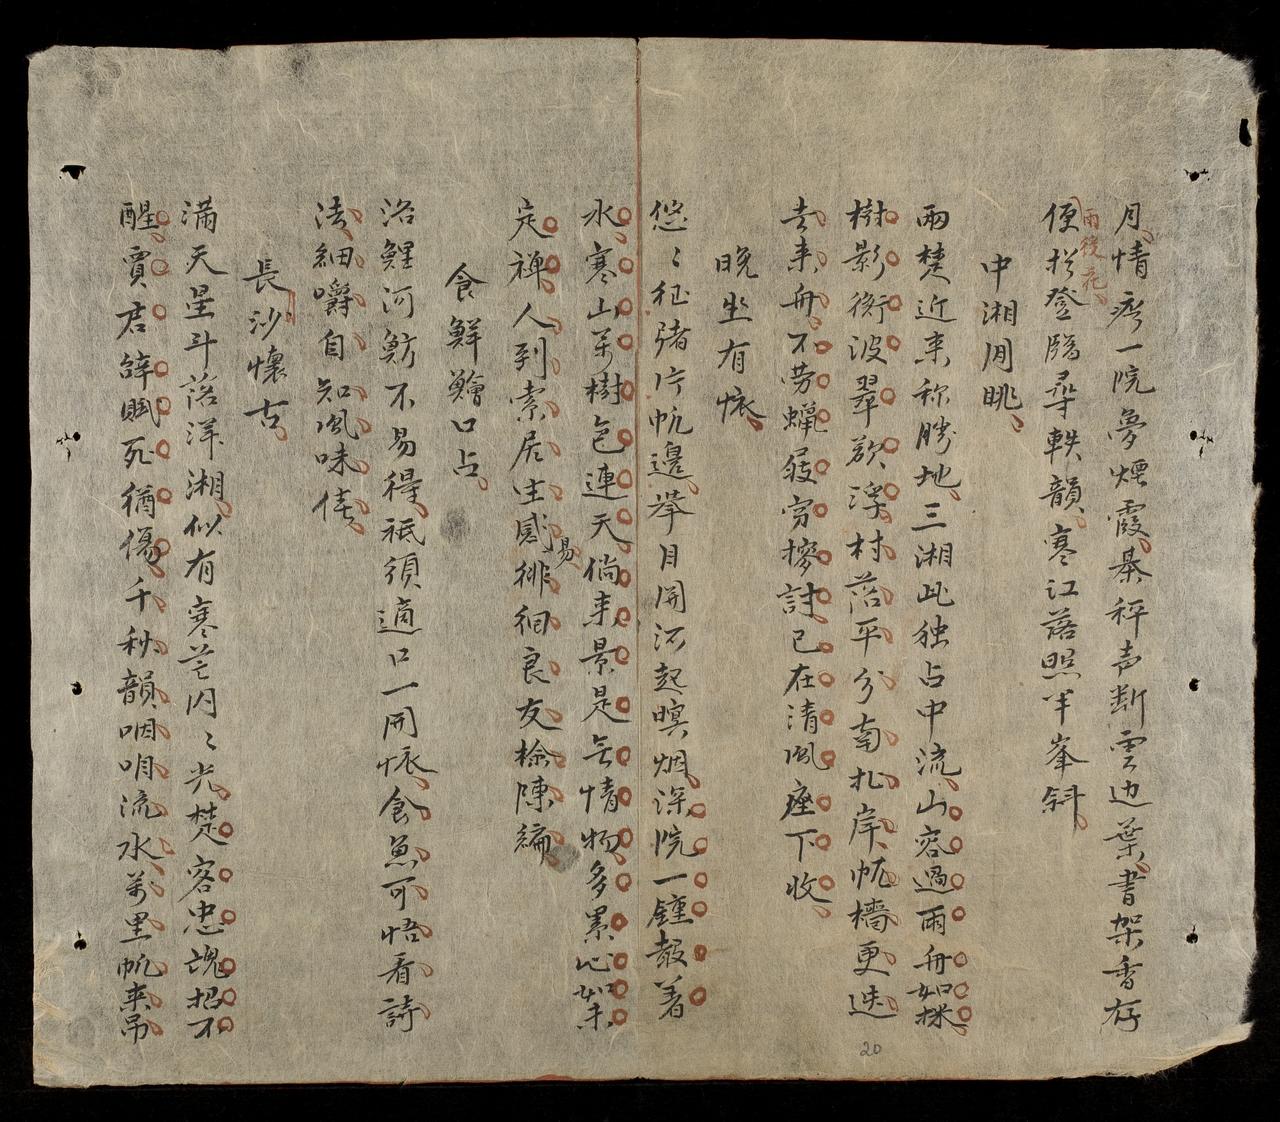 月情疼一院夢煙霞棊秤声断雲边葉書架香存
雨後花
便拟登臨尋軼韻寒江落照半峯斜
中湘閒眺
兩楚近来称勝地三湘此独占中流山容過雨舟如抹
樹影銜波翠欲浮村落平分南北岸帆檣更迭
去来舟不劳蠟屐窮撏討已在清風座下收
晚坐有懐
悠〻征猪片帆邊举目開河起暝烟深院一鍾聲着
水寒山萬樹色連天倘来景是無情物多累心如未
定禅人到索居生感易
徘徊良友檢陳編
食鮮鱠口占
洛鯉河魴不易得祗須適口一開懐食魚可悟看詩
法細嚼自知風味佳
長沙懷古
滿天星斗落洋湘似有寒芒闪〻光楚客忠魂招不
醒賈君辞賦死猶傷千秋韻咽咱流水萬里帆来吊
20